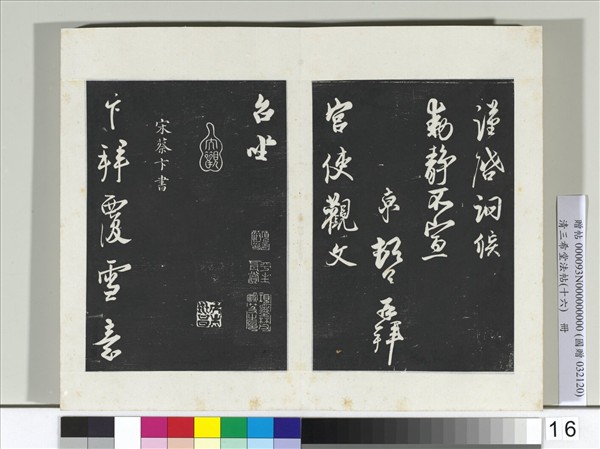 謹啓詞候
動靜不宣
京 頓首再拜
宮使觀文
台坐
大觀
宋蔡卞書
卞拜覆雪意
贈帖 000093N000000000 (國贈 032120)
清三希堂法帖(十六) 冊
16